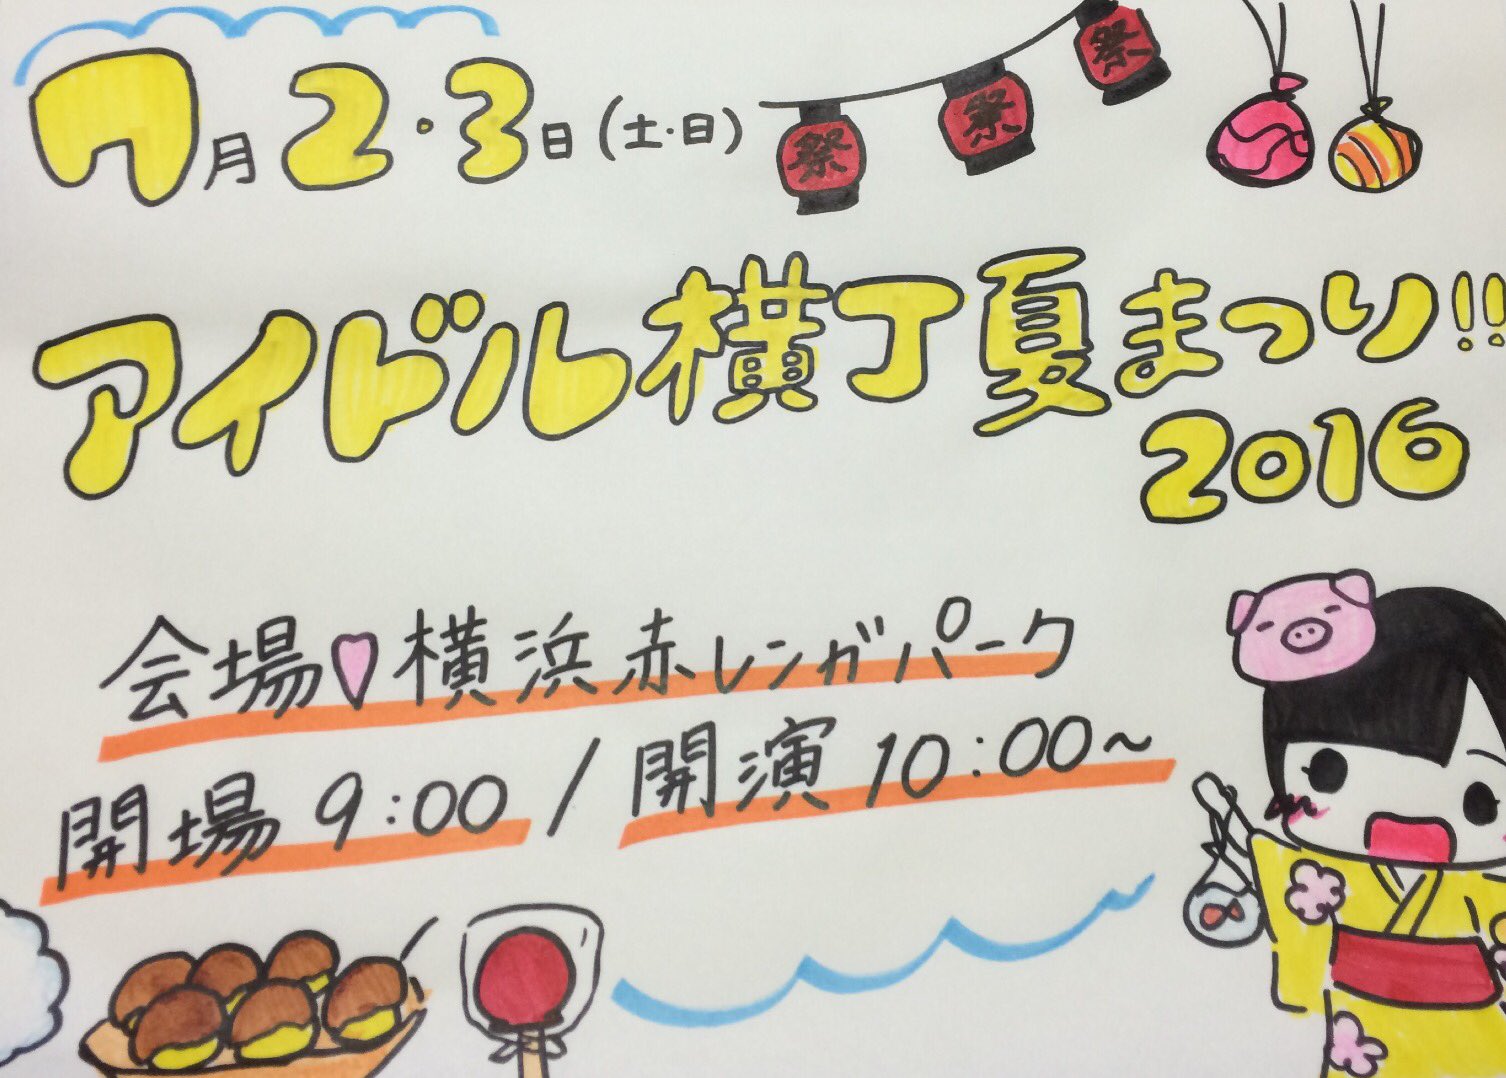 7月2・3日(土・日)
祭 祭 祭
アイドル横丁夏まつり!!
2016
会場♥横浜赤レンガパーク
開場 9:00 / 開演 10:00~